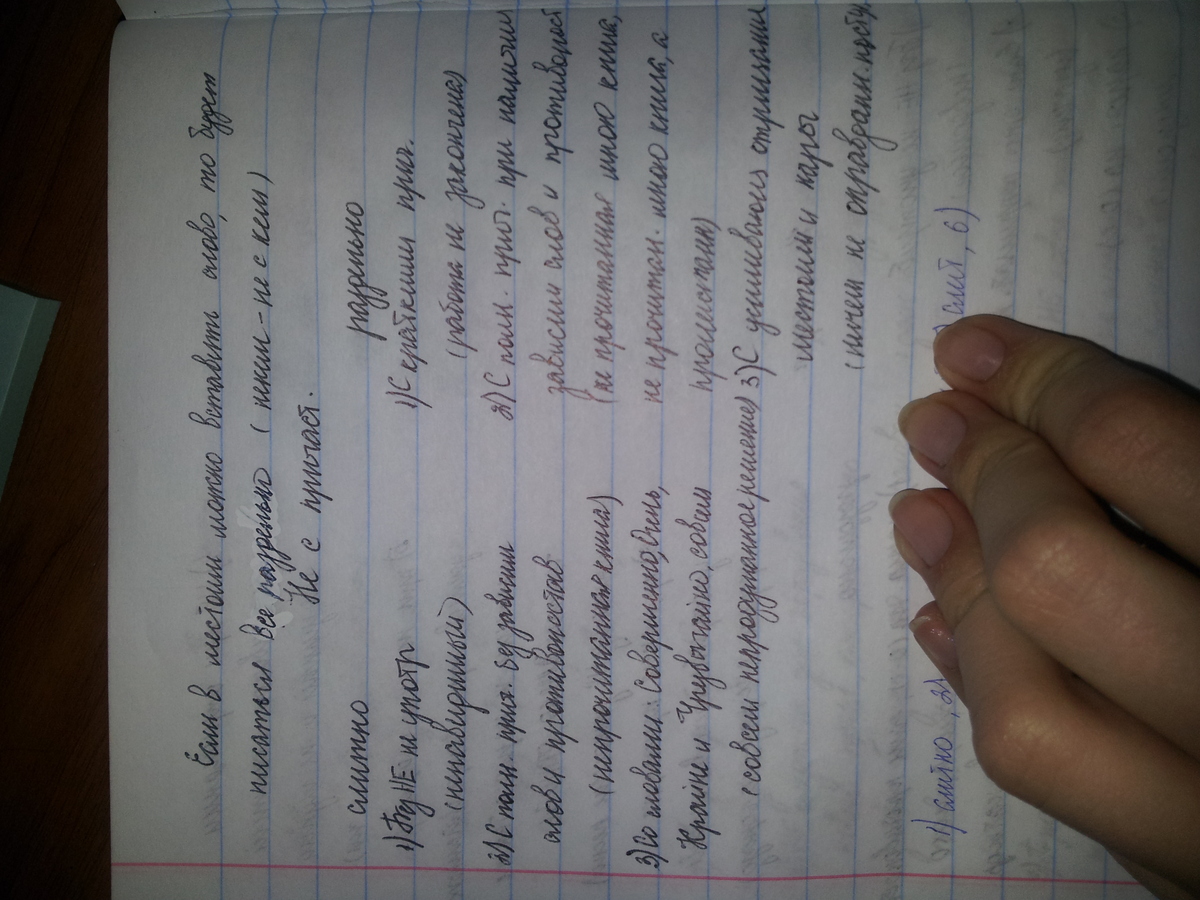 Если в местоим можно вставить слово, то будет
писаться все раздельно (никим - не с кем)
Не с причаст.
слитно раздельно
1) Без НЕ не употр 1) С краткими прич.
(ненавидинный) (работа не закончена)
2) С полн. прич. без зависим 2) С полн. прич. при наличии
слов и противопостав зависим слов и противопост
(непрочитанная книга) (не прочитанная мною книга,
3) Со словами: Совершенно, очень, не прочитан. мною книга, а
Крайне и Чрезвычайно, совсем пролистани)
(совсем непродуманное решение) 3) С усиливающ отрицания
местоим и нареч
(ничем не оправдан. посту
1) слитно, 2) слит, 6)